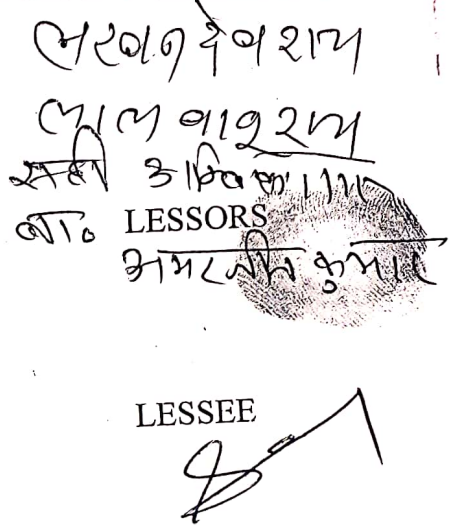 लखन देव राय
लाल बाबू राय
सही अम्बिका राय
बा॰ LESSORS
अमरजीत कुमार
LESSEE